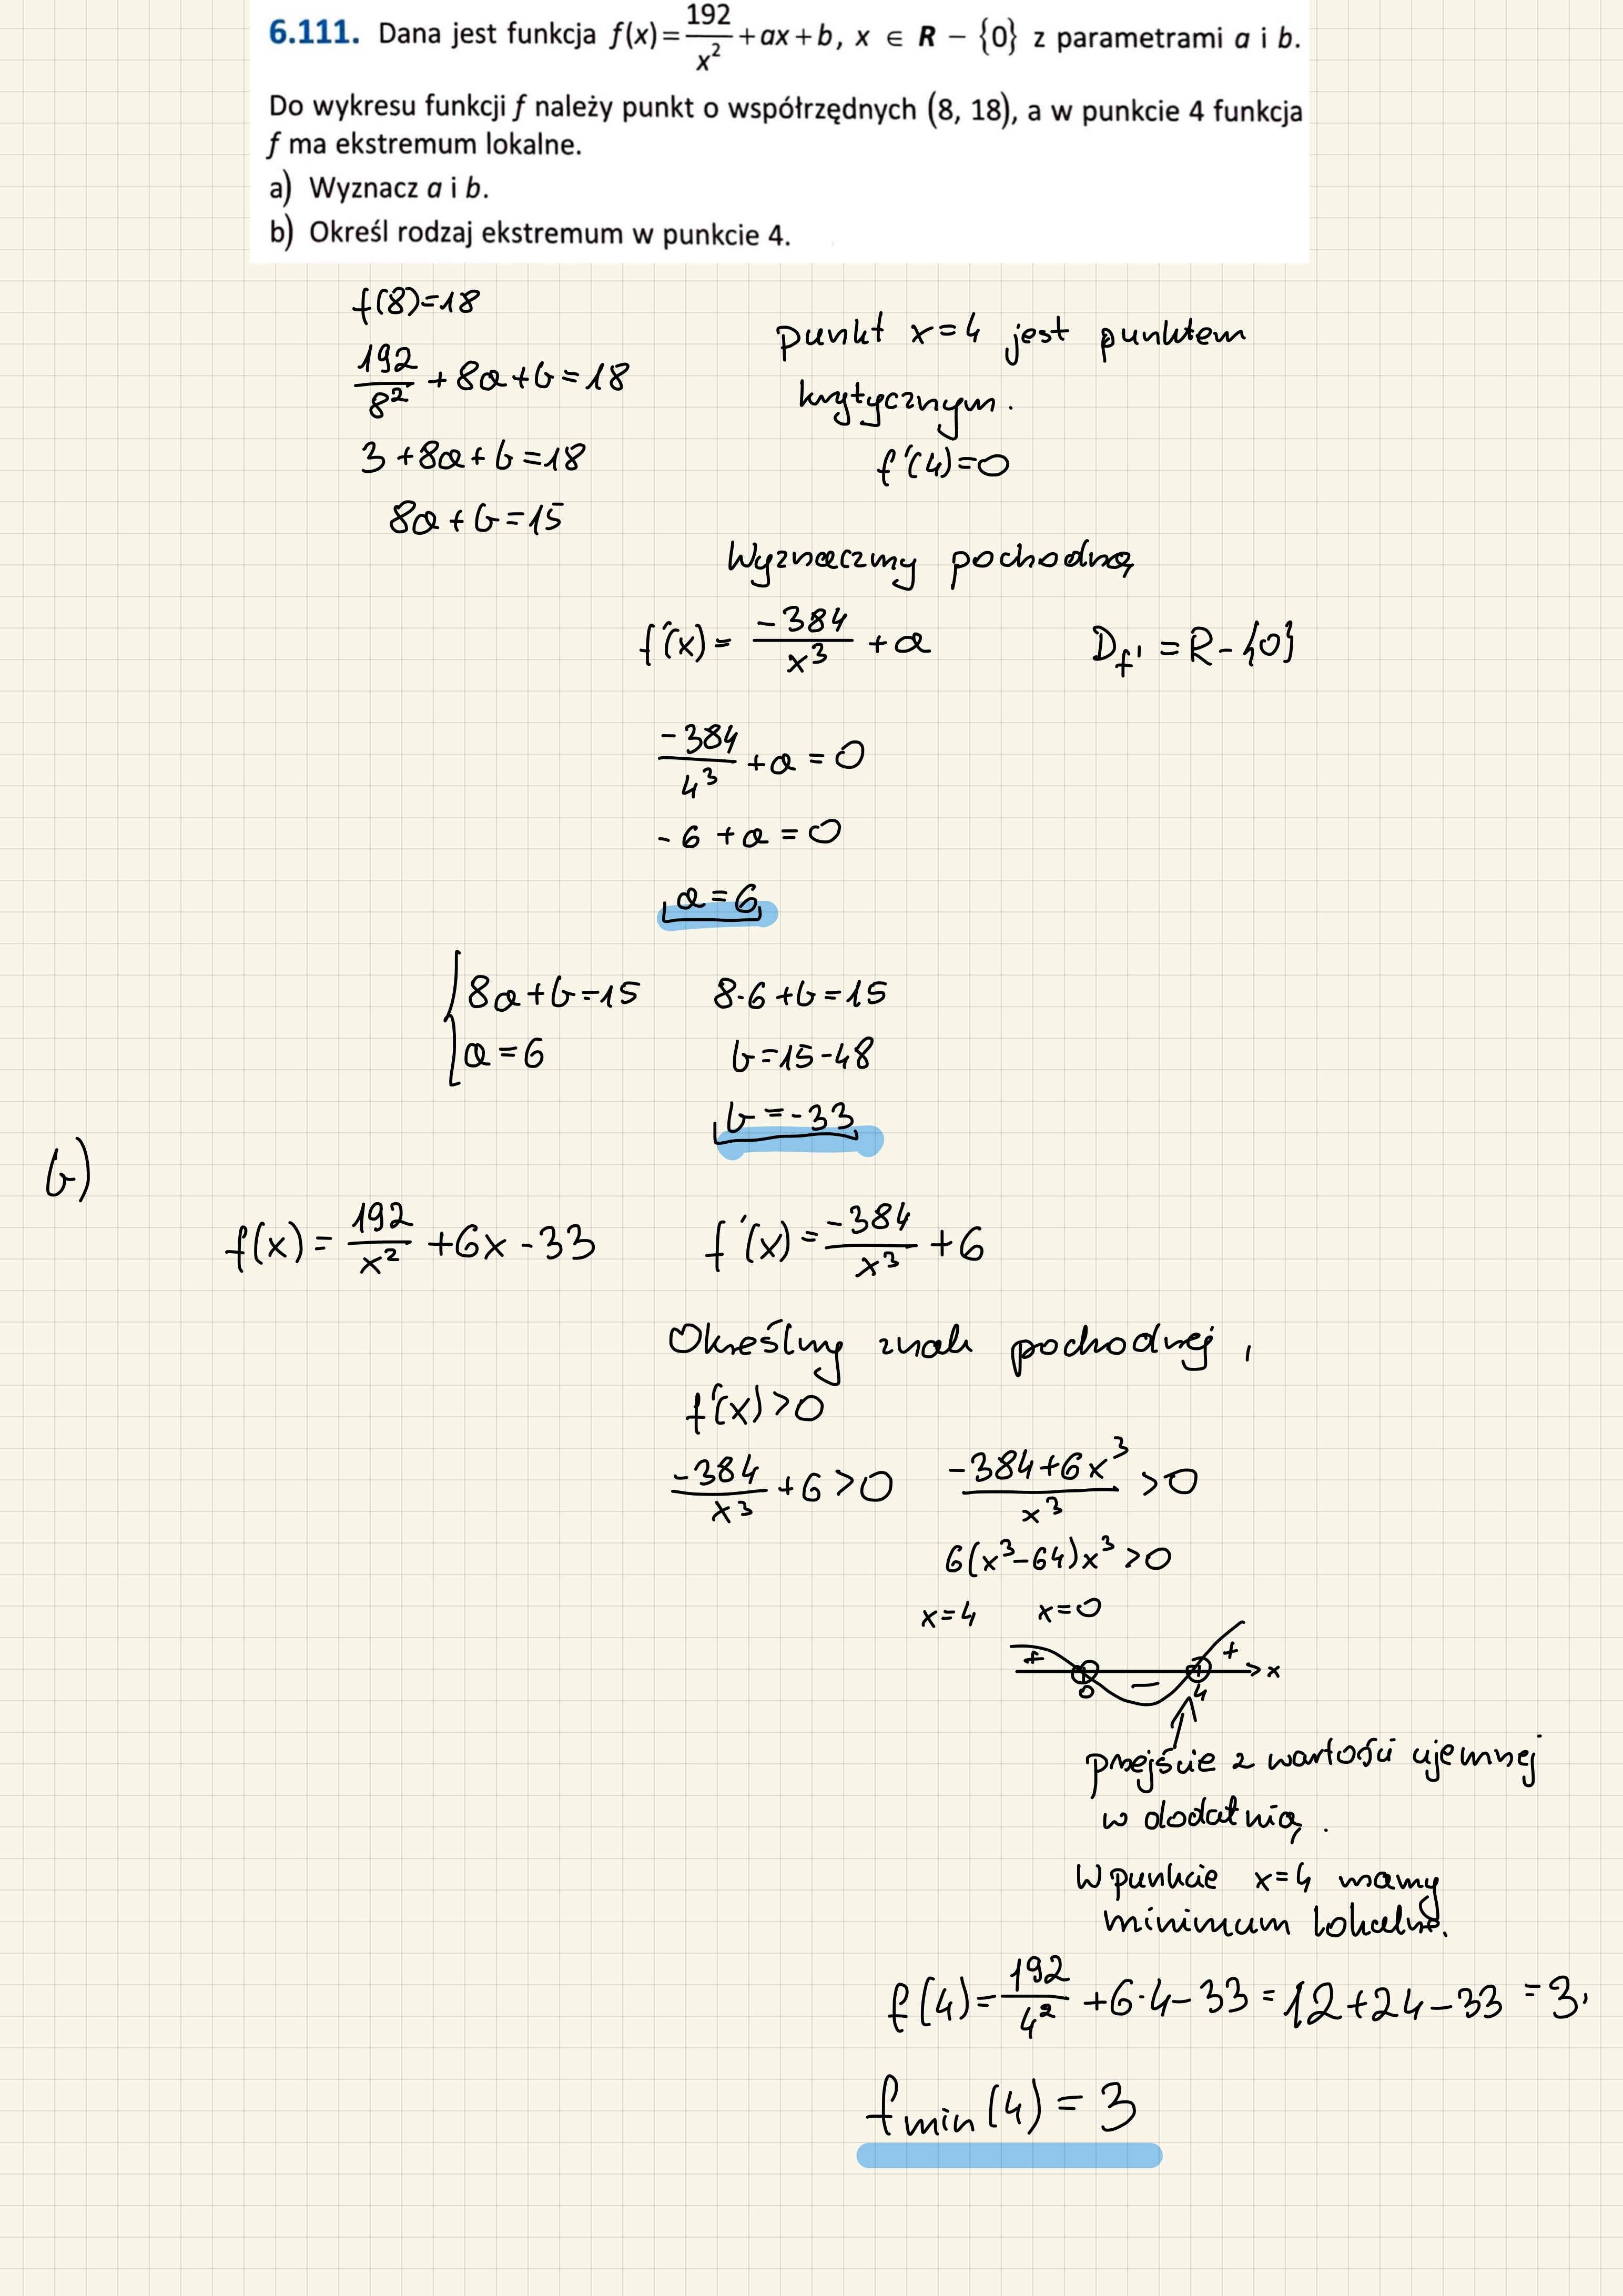 6.111. Dana jest funkcja f(x) = 192/x² + ax + b, x ∈ R − {0} z parametrami a i b.
Do wykresu funkcji f należy punkt o współrzędnych (8, 18), a w punkcie 4 funkcja
f ma ekstremum lokalne.
a) Wyznacz a i b.
b) Określ rodzaj ekstremum w punkcie 4.
f(8)=18
192/8² + 8a + b = 18
3 + 8a + b = 18
8a + b = 15
punkt x=4 jest punktem
krytycznym.
f'(4)=0
Wyznaczmy pochodną
f'(x) = -384/x³ + a
D_f' = R - {0}
-384/4³ + a = 0
-6 + a = 0
a = 6
8a + b = 15
a = 6
8·6 + b = 15
b = 15 - 48
b = -33
b)
f(x) = 192/x² + 6x - 33
f'(x) = -384/x³ + 6
Określmy znak pochodnej,
f'(x) > 0
-384/x³ + 6 > 0
(-384 + 6x³)/x³ > 0
6(x³-64)x³ > 0
x=4 x=0
+ − + x
0 4
przejście z wartości ujemnej
w dodatnią.
W punkcie x=4 mamy
minimum lokalne.
f(4) = 192/4² + 6·4 - 33 = 12 + 24 - 33 = 3,
f min (4) = 3